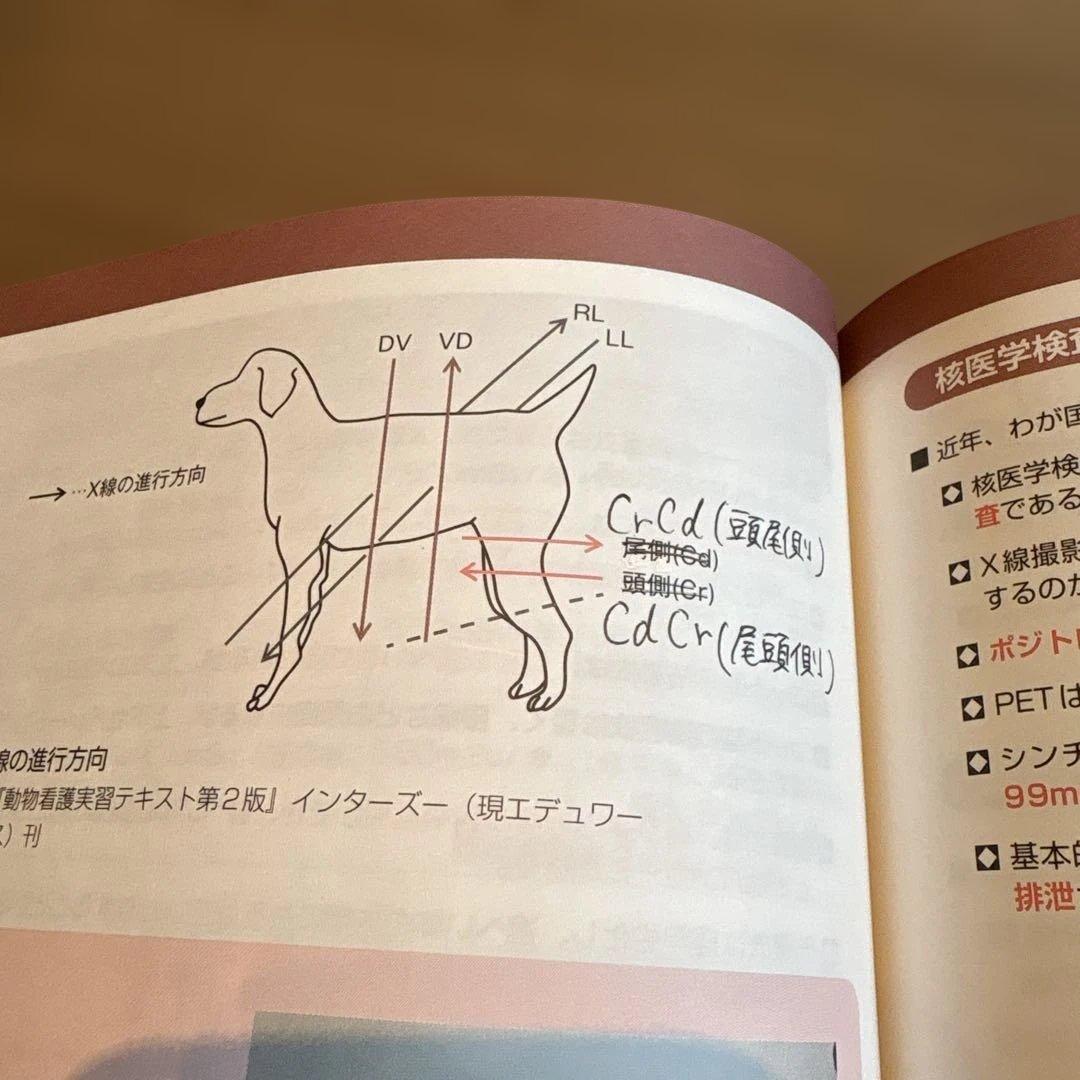 RL
DV VD LL
→…X線の進行方向
CrCd(頭尾側)
尾側(Cd)
頭側(Cr)
CdCr(尾頭側)
線の進行方向
『動物看護実習テキスト第2版』インターズー(現エデュワー
ス)刊
核医学検査
■ 近年、わが国
核医学検
査である
X線撮影
するのか
ポジト
PETは
シンチ
99m
基本的
排泄